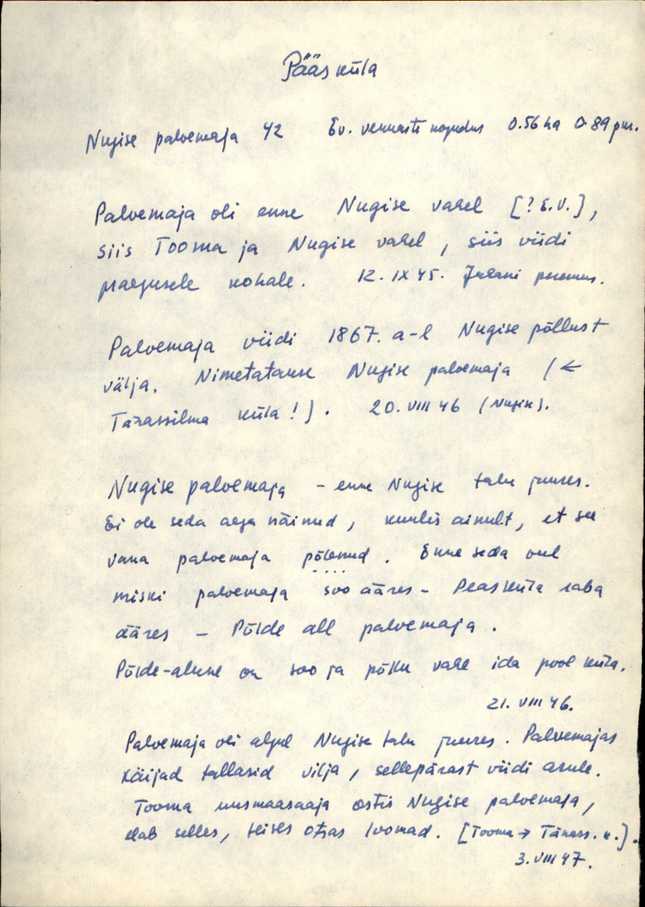 Pääsküla
Nugise palvemaja 42 Ev. vennaste kogudus 0.56 ha 0.89 pm.
Palvemaja oli enne Nugise vahel [? E.V.],
siis Tooma ja Nugise vahel, siis viidi
praegusele kohale. 12. IX 45. Juhani peremees.
Palvemaja viidi 1867. a-l Nugise põllust
välja. Nimetatakse Nugise palvemaja (←
Tänassilma küla!). 20. VIII 46 (Nugise).
Nugise palvemaja - enne Nugise talu juures.
Ei ole seda aega näinud, kuulis ainult, et see
vana palvemaja põlenud. Enne seda veel
miski palvemaja soo ääres - Peasküla raba
ääres - Põlde all palvemaja.
Põlde-alune on soo ja põllu vahe ida pool küla.
21. VIII 46.
Palvemaja oli algul Nugise talu juures. Palvemajas
käijad tallasid vilja, sellepärast viidi ärule.
Tooma uusmaasaaja ostis Nugise palvemaja,
elab selles, teises otsas loomad. [Tooma → Tänass. k.].
3. VIII 47.